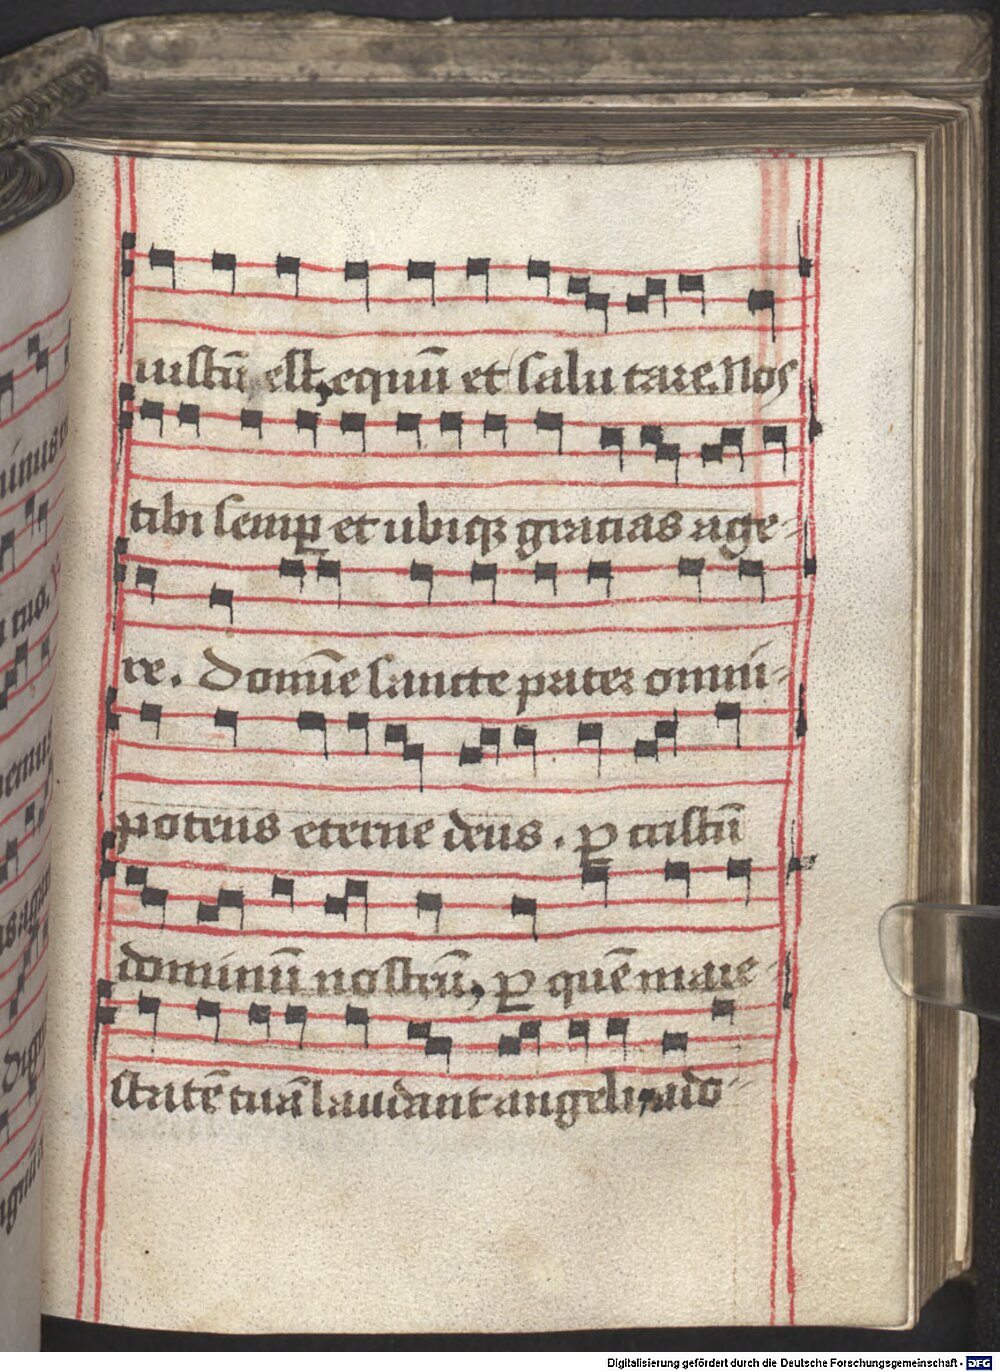 iustū est, equū et salutare. Nos
tibi semꝑ et ubiqꝫ gracias age-
re. Domīe sancte pater omni-
potens eterne deus. ꝑ cristū
dominū nostrū, ꝑ quē maie-
statē tuā laudant angeli, ado-
Digitalisierung gefördert durch die Deutsche Forschungsgemeinschaft - DFG